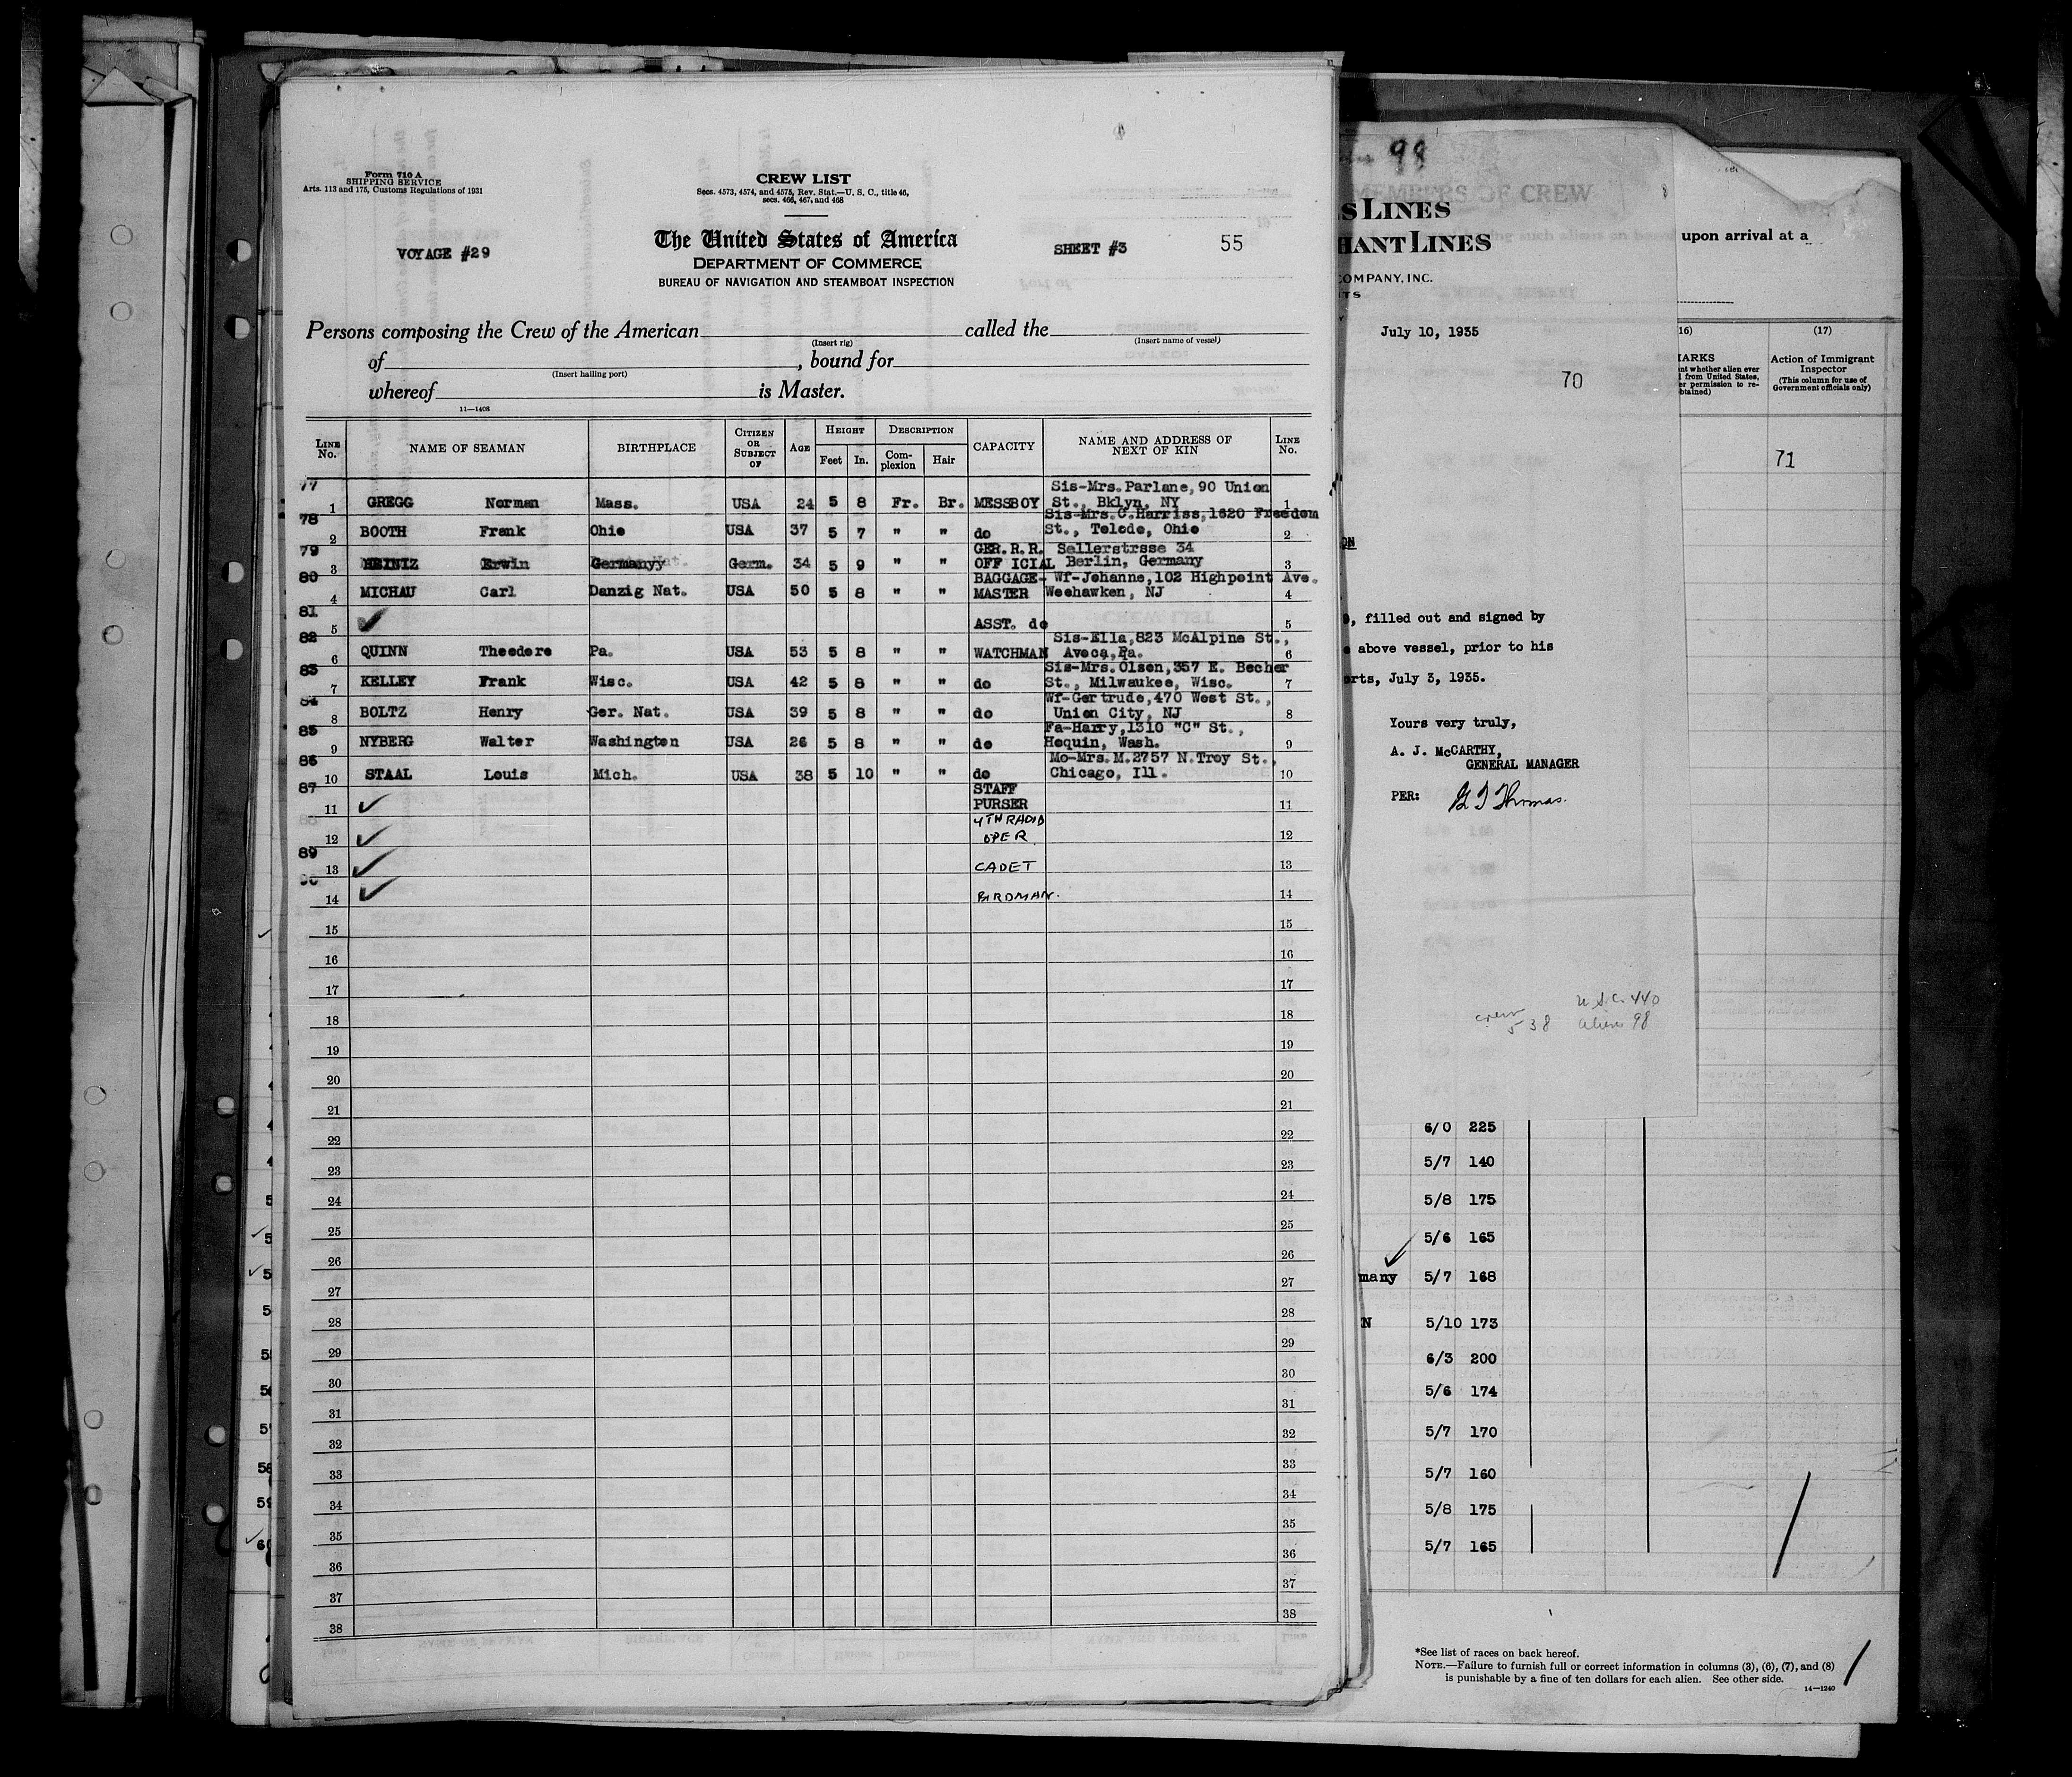 Form 710 A
SHIPPING SERVICE
Arts. 113 and 175, Customs Regulations of 1931
CREW LIST
Secs. 4573, 4574, and 4575, Rev. Stat.—U. S. C., title 46,
secs. 466, 467, and 468
VOYAGE #29
The United States of America
SHEET #3
55
DEPARTMENT OF COMMERCE
BUREAU OF NAVIGATION AND STEAMBOAT INSPECTION
Persons composing the Crew of the American called the
(Insert rig) (Insert name of vessel)
of , bound for
(Insert hailing port)
whereof is Master.
11—1408
LINE No. NAME OF SEAMAN BIRTHPLACE CITIZEN OR SUBJECT OF AGE HEIGHT Feet In. DESCRIPTION Complexion Hair CAPACITY NAME AND ADDRESS OF NEXT OF KIN LINE No.
77 Sis-Mrs. Parlane, 90 Union
1 GREGG Norman Mass. USA 24 5 8 Fr. Br. MESSBOY St., Bklyn, NY 1
78 Sis-Mrs.C.Harriss,1620 Freedom
2 BOOTH Frank Ohio USA 37 5 7 " " do St., Toledo, Ohio 2
79 GER.R.R. Sellerstrsse 34
3 HEINTZ Erwin Germany Germ. 34 5 9 " " OFF ICIAL Berlin, Germany 3
80 BAGGAGE- Wf-Johanne,102 Highpoint Ave.
4 MICHAU Carl Danzig Nat. USA 50 5 8 " " MASTER Weehawken, NJ 4
81
5 ✓ ASST. do 5
82 Sis-Ella,823 McAlpine St.,
6 QUINN Theodore Pa. USA 53 5 8 " " WATCHMAN Avoca,Pa. 6
83 Sis-Mrs.Olsen,357 E. Becher
7 KELLEY Frank Wisc. USA 42 5 8 " " do St., Milwaukee, Wisc. 7
84 Wf-Gertrude,470 West St.,
8 BOLTZ Henry Ger. Nat. USA 39 5 8 " " do Union City, NJ 8
85 Fa-Harry,1310 "C" St.,
9 NYBERG Walter Washington USA 26 5 8 " " do Hoquin, Wash. 9
86 Mo-Mrs.M.2757 N.Troy St.,
10 STAAL Louis Mich. USA 38 5 10 " " do Chicago, Ill. 10
87 STAFF
11 ✓ PURSER 11
4TH RADIO
12 ✓ OPER 12
89
13 ✓ CADET 13
14 ✓ BIRDMAN. 14
15 15
16 16
17 17
18 18
19 19
20 20
21 21
22 22
23 23
24 24
25 25
26 26
27 27
28 28
29 29
30 30
31 31
32 32
33 33
34 34
35 35
36 36
37 37
38 38
98
MEMBERS OF CREW
S LINES
HANT LINES
COMPANY, INC.
TS
July 10, 1935
70
ON
, filled out and signed by
above vessel, prior to his
rts, July 3, 1935.
Yours very truly,
A. J. McCARTHY,
GENERAL MANAGER
PER: Thomas.
U.S.C. 440
crew 538 Aliens 98
upon arrival at a
16) (17)
MARKS Action of Immigrant
Inspector
nt whether alien ever
from United States, (This column for use of
er permission to re- Government officials only)
btained)
71
6/0 225
5/7 140
5/8 175
5/6 165
many 5/7 168
N 5/10 173
6/3 200
5/6 174
5/7 170
5/7 160
5/8 175
5/7 165
*See list of races on back hereof.
NOTE.—Failure to furnish full or correct information in columns (3), (6), (7), and (8)
is punishable by a fine of ten dollars for each alien. See other side.
14—1240